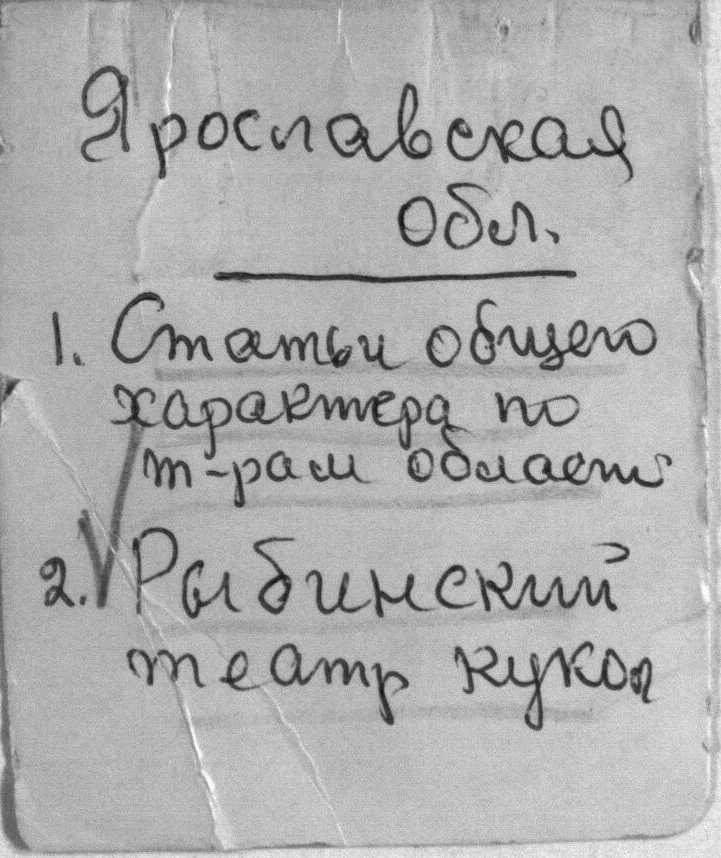 Ярославская
обл.
1. Статьи общего
характера по
т-рам области
2. Рыбинский
театр кукол